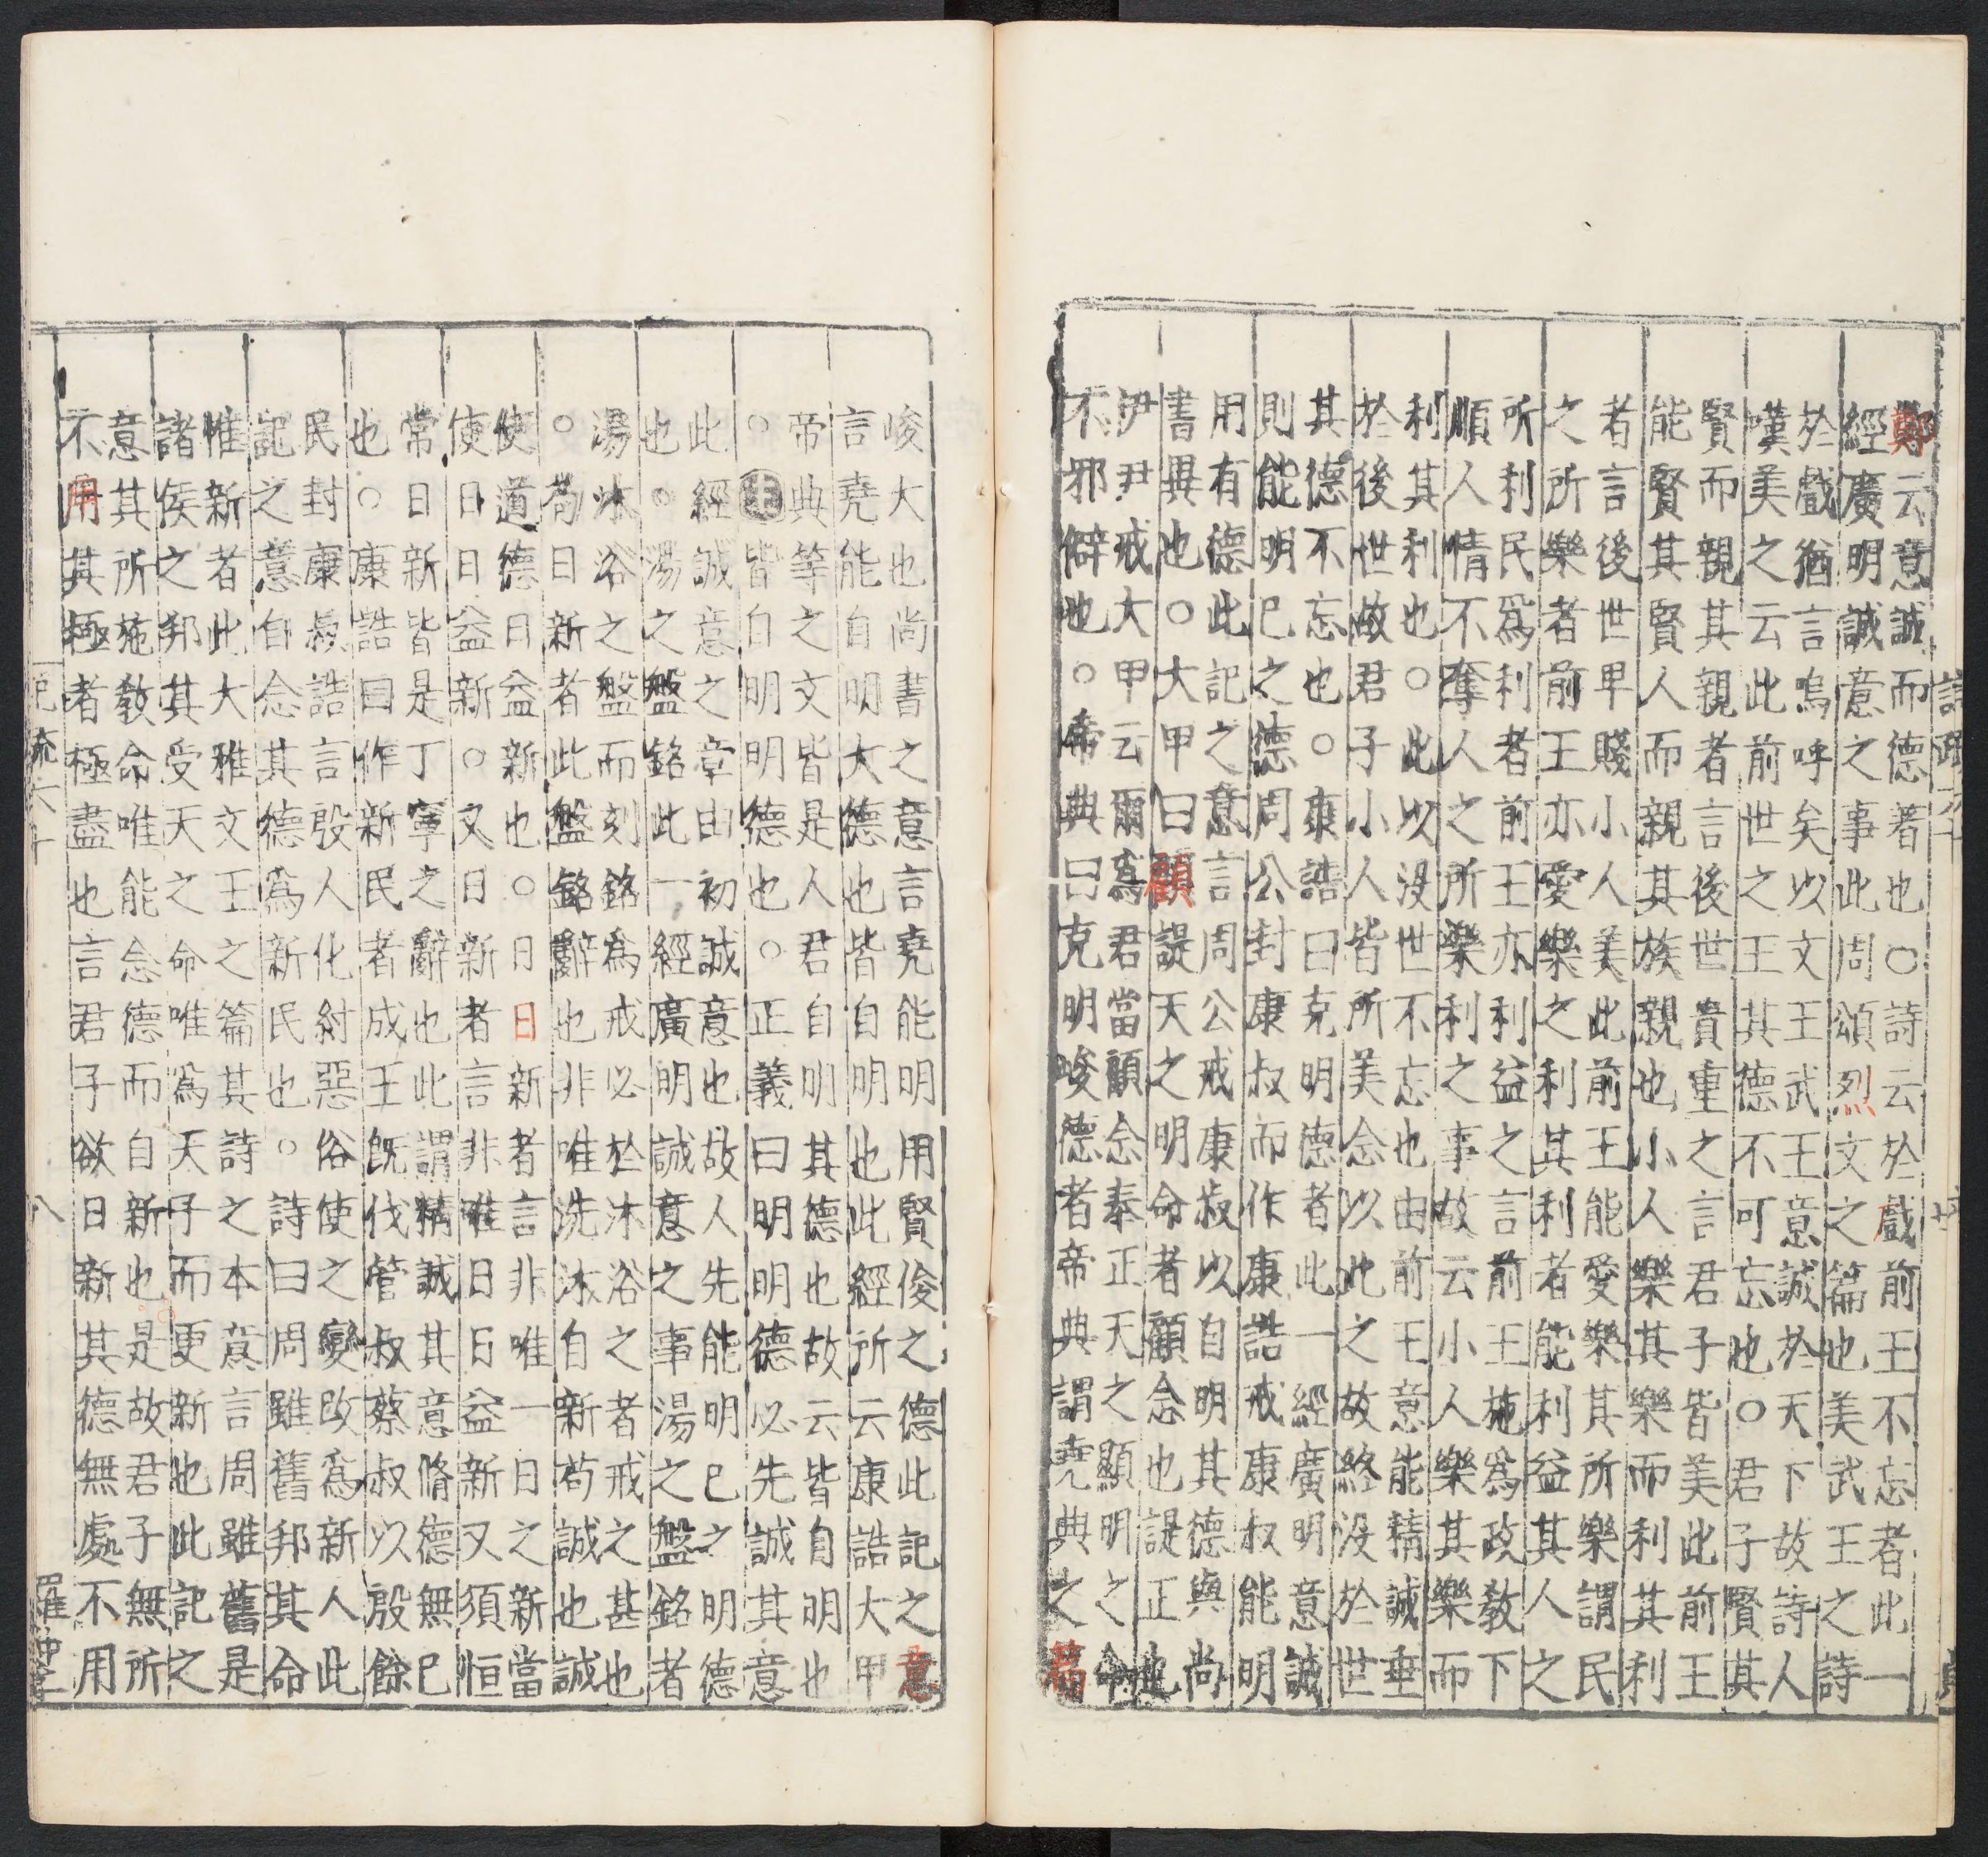 鄭云意誠而德著也○詩云於戲前王不忘者此一
經廣明誠意之事此周頌烈文之篇也美武王之詩
於戲猶言嗚呼矣以文王武王意誠於天下故詩人
嘆美之云此前世之王其德不可忘也○君子賢其
賢而親其親者言後世貴重之言君子皆美此前王
能賢其賢人而親其族親也小人樂其樂而利其利
者言後世卑賤小人美此前王能愛樂其所樂謂民
之所樂者前王亦愛樂之利其利者能利益其人之
所利民爲利者前王亦利益之言前王施爲政教下
順人情不奪人之所樂利之事故云小人樂其樂而
利其利也○此以沒世不忘也由前王意能精誠垂
於後世故君子小人皆所美念以此之故終沒於世
其德不忘也○康誥曰克明德者此一經廣明意誠
則能明已之德周公封康叔而作康誥戒康叔能明
用有德此記之意言周公戒康叔以自明其德與尚
書異也○大甲曰顧諟天之明命者顧念也諟正也
伊尹戒大甲云爾爲君當顧念奉正天之顯明之命
不邪僻也○帝典曰克明峻德者帝典謂堯典之篇
峻大也尚書之意言堯能明用賢俊之德此記之意
言堯能自明大德也皆自明也此經所云康誥大甲
帝典等之文皆是人君自明其德也故云皆自明也
○注皆自明明德也○正義曰明明德必先誠其意
此經誠意之章由初誠意也故人先能明已之明德
也○湯之盤銘此一經廣明誠意之事湯之盤銘者
湯沐浴之盤而刻銘爲戒必於沐浴之者戒之甚也
○苟日新者此盤銘辭也非唯洗沐自新苟誠也誠
使道德日益新也○日日新者言非唯一日之新當
使日日益新○又日新者言非唯日日益新又須恒
常日新皆是丁寧之辭也此謂精誠其意脩德無已
也○康誥曰作新民者成王旣伐管叔蔡叔以殷餘
民封康叔誥言殷人化紂惡俗使之變改爲新人此
記之意自念其德爲新民也○詩曰周雖舊邦其命
惟新者此大雅文王之篇其詩之本意言周雖舊是
諸侯之邦其受天之命唯爲天子而更新也此記之
意其所施教命唯能念德而自新也是故君子無所
不用其極者極盡也言君子欲日新其德無處不用